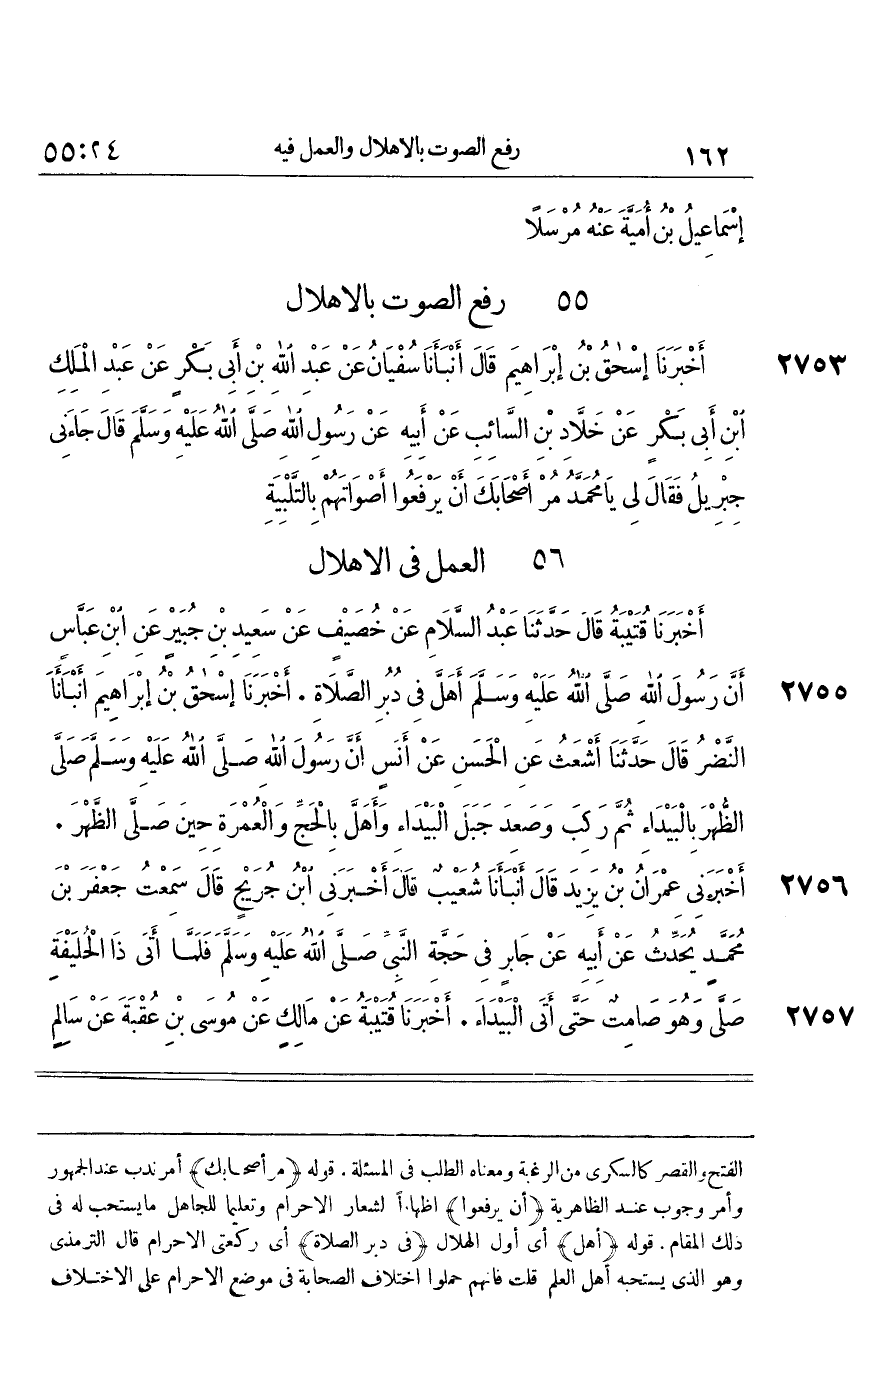 ١٦٢ رفع الصوت بالاهلال والعمل فيه ٢٤ : ٥٥
إِسْمَاعِيلُ بْنُ أُمَيَّةَ عَنْهُ مُرْسَلًا
٥٥ رفع الصوت بالاهلال
٢٧٥٣ أَخْبَرَنَا إِسْحٰقُ بْنُ إِبْرَاهِيمَ قَالَ أَنْبَأَنَا سُفْيَانُ عَنْ عَبْدِ اللهِ بْنِ أَبِى بَكْرٍ عَنْ عَبْدِ الْمَلِكِ
ابْنِ أَبِى بَكْرٍ عَنْ خَلَّادِ بْنِ السَّائِبِ عَنْ أَبِيهِ عَنْ رَسُولِ اللهِ صَلَّى اللهُ عَلَيْهِ وَسَلَّمَ قَالَ جَاءَنِى
جِبْرِيلُ فَقَالَ لِى يَامُحَمَّدُ مُرْ أَصْحَابَكَ أَنْ يَرْفَعُوا أَصْوَاتَهُمْ بِالتَّلْبِيَةِ
٥٦ العمل فى الاهلال
أَخْبَرَنَا قُتَيْبَةُ قَالَ حَدَّثَنَا عَبْدُ السَّلَامِ عَنْ خُصَيْفٍ عَنْ سَعِيدِ بْنِ جُبَيْرٍ عَنِ ابْنِ عَبَّاسٍ
٢٧٥٥ أَنَّ رَسُولَ اللهِ صَلَّى اللهُ عَلَيْهِ وَسَلَّمَ أَهَلَّ فِى دُبُرِ الصَّلَاةِ . أَخْبَرَنَا إِسْحٰقُ بْنُ إِبْرَاهِيمَ أَنْبَأَنَا
النَّضْرُ قَالَ حَدَّثَنَا أَشْعَثُ عَنِ الْحَسَنِ عَنْ أَنَسٍ أَنَّ رَسُولَ اللهِ صَلَّى اللهُ عَلَيْهِ وَسَلَّمَ صَلَّى
الظُّهْرَ بِالْبَيْدَاءِ ثُمَّ رَكِبَ وَصَعِدَ جَبَلَ الْبَيْدَاءِ وَأَهَلَّ بِالْحَجِّ وَالْعُمْرَةِ حِينَ صَلَّى الظُّهْرَ .
٢٧٥٦ أَخْبَرَنِى عِمْرَانُ بْنُ يَزِيدَ قَالَ أَنْبَأَنَا شُعَيْبٌ قَالَ أَخْبَرَنِى ابْنُ جُرَيْجٍ قَالَ سَمِعْتُ جَعْفَرَ بْنَ
مُحَمَّدٍ يُحَدِّثُ عَنْ أَبِيهِ عَنْ جَابِرٍ فِى حَجَّةِ النَّبِىِّ صَلَّى اللهُ عَلَيْهِ وَسَلَّمَ فَلَمَّا أَتَى ذَا الْحُلَيْفَةِ
٢٧٥٧ صَلَّى وَهُوَ صَامِتٌ حَتَّى أَتَى الْبَيْدَاءَ . أَخْبَرَنَا قُتَيْبَةُ عَنْ مَالِكٍ عَنْ مُوسَى بْنِ عُقْبَةَ عَنْ سَالِمٍ
الفتح والقصر كالسكرى من الرغبة ومعناه الطلب فى المسئلة . قوله ﴿مر أصحابك﴾ أمر ندب عند الجمهور
وأمر وجوب عند الظاهرية ﴿أن يرفعوا﴾ اظهاراً لشعار الاحرام وتعليما للجاهل مايستحب له فى
ذلك المقام . قوله ﴿أهل﴾ أى أول الهلال ﴿فى دبر الصلاة﴾ أى ركعتى الاحرام قال الترمذى
وهو الذى يستحبه أهل العلم قلت فانهم حملوا اختلاف الصحابة فى موضع الاحرام على الاختلاف